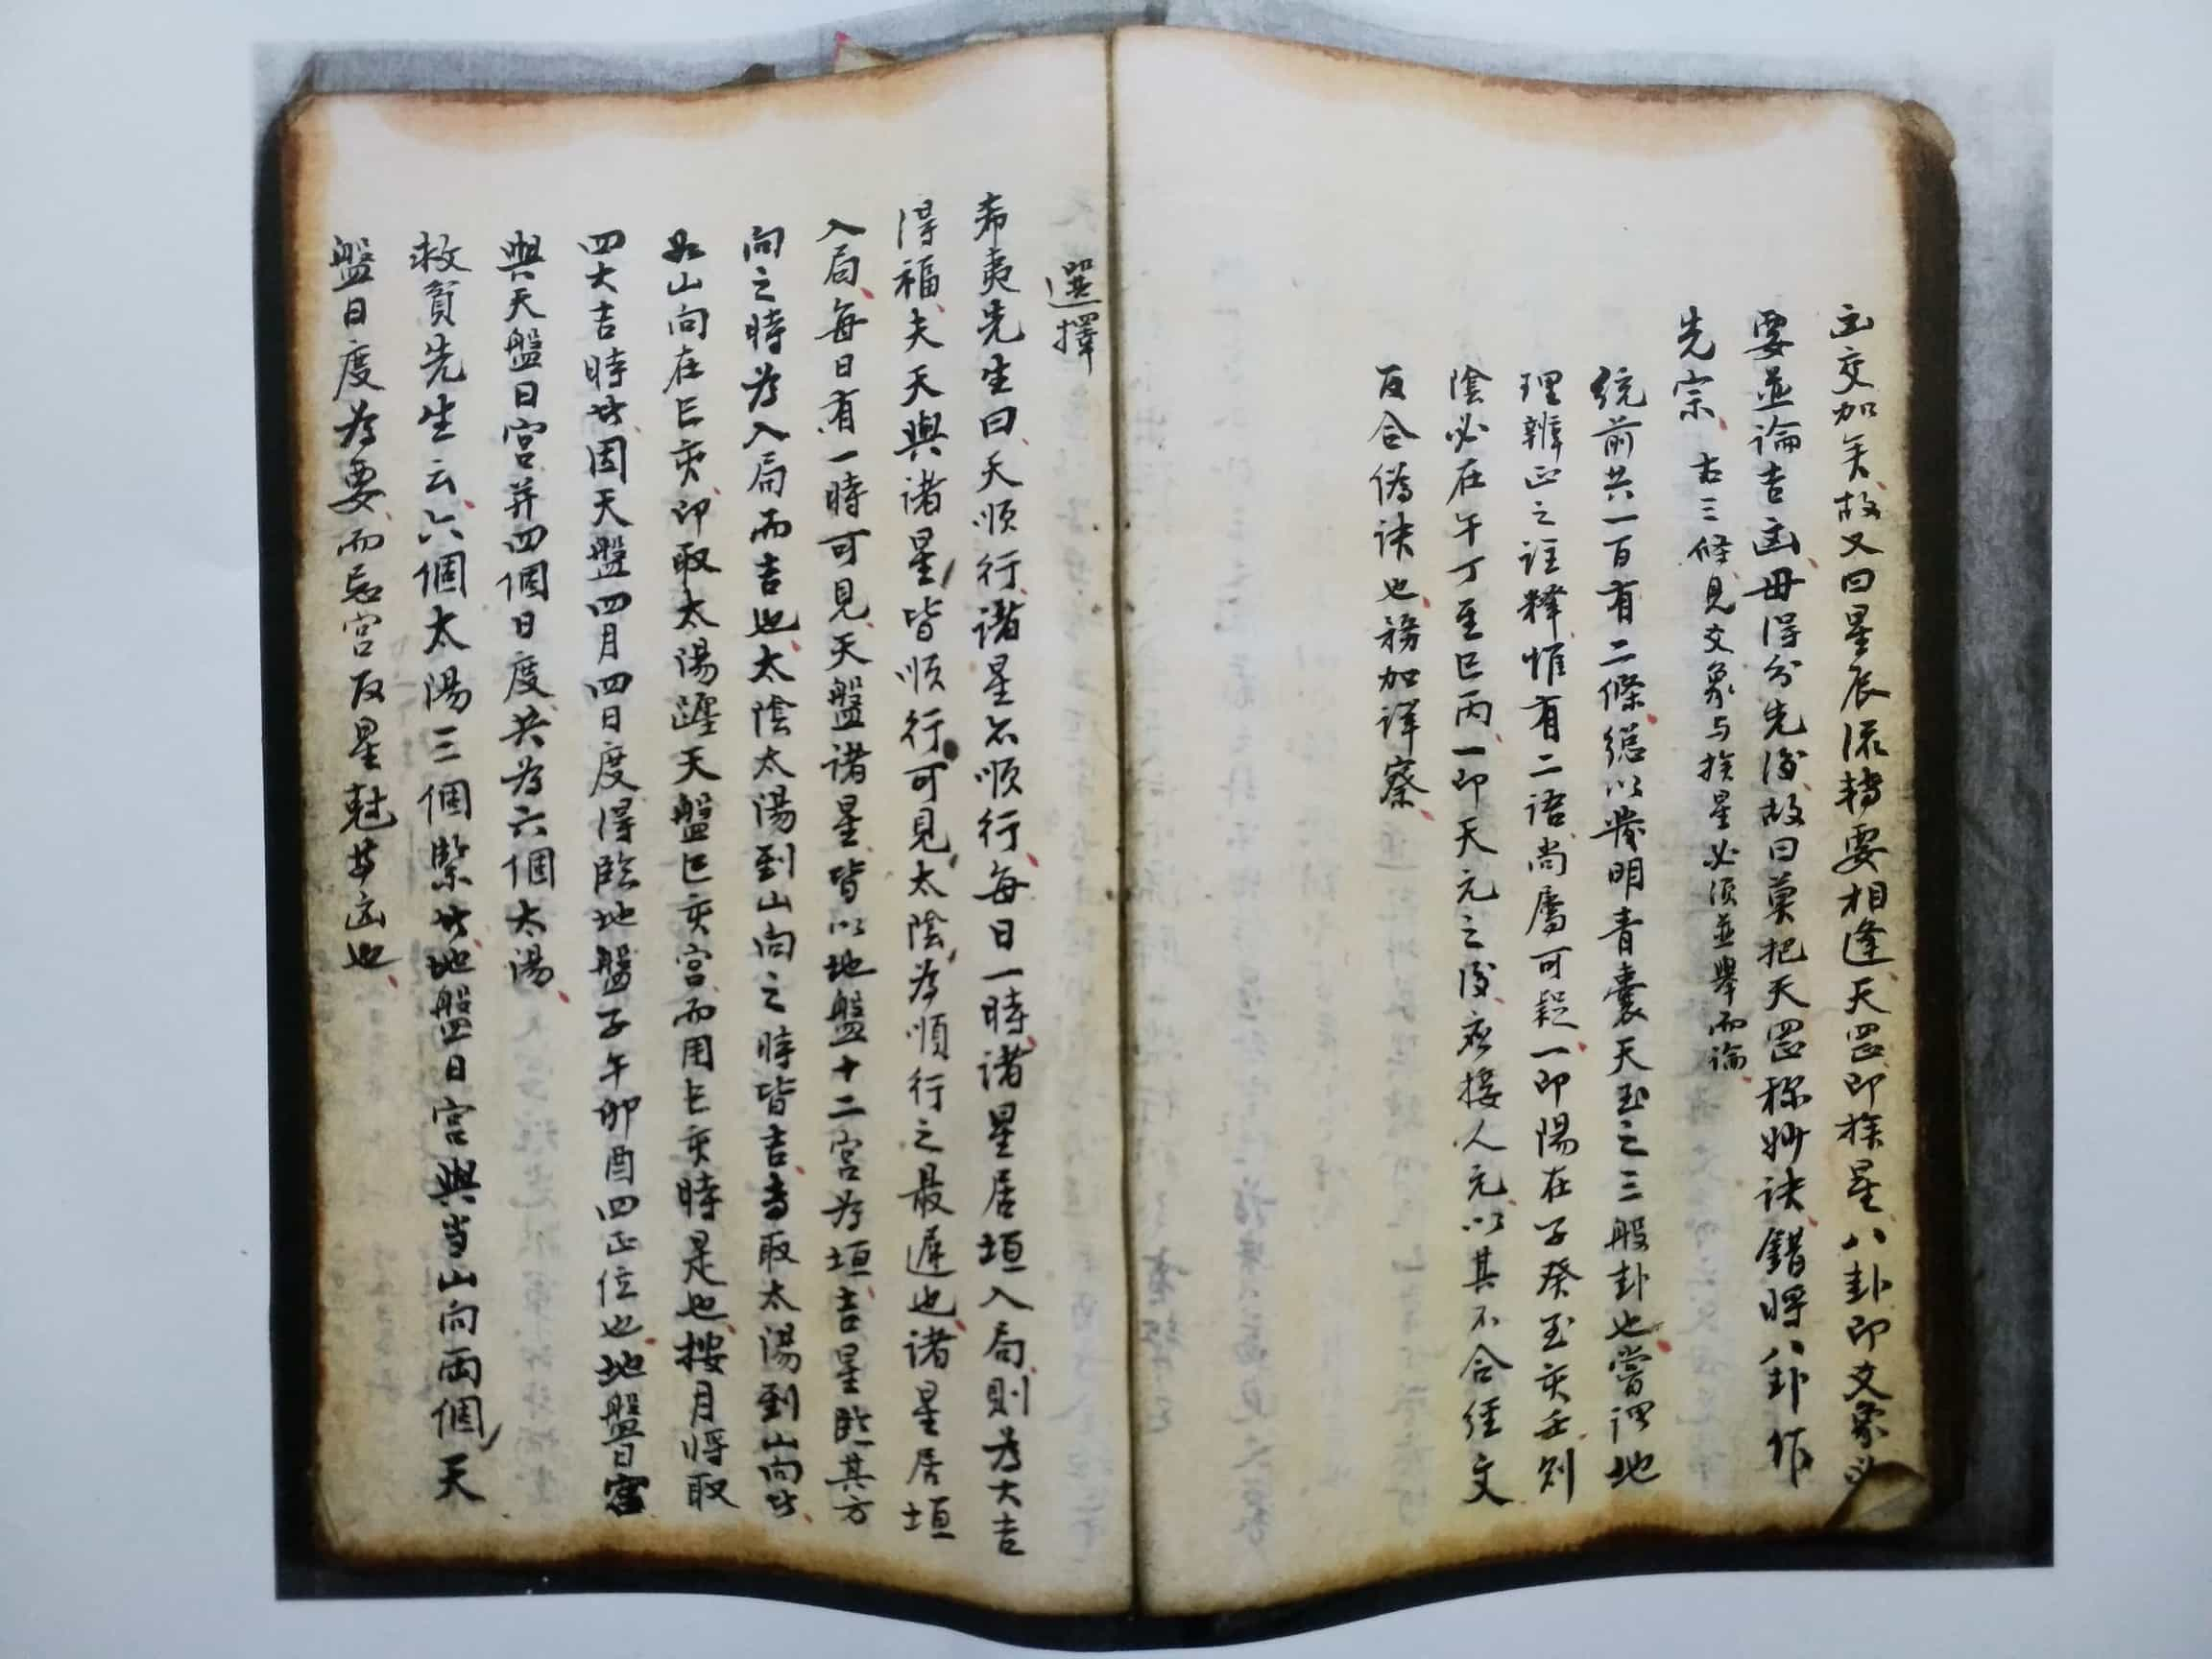 凶交加矣、故又曰星辰流轉要相逢、天罡即挨星八卦即爻象必
要並論吉凶、毋得分先後、故曰莫把天罡称妙訣、錯將八卦作
先宗、右三條見爻象与挨星必須並舉而論、
統前共一百有二條、總以發明青囊天玉之三般卦也、嘗謂地
理辨正之註釋惟有二語尚屬可疑、一即陽在子癸至亥壬、則
陰必在午丁至巳丙、一即天元之後應接人元、以其不合經文
反合偽訣也、務加詳察、
選擇
希夷先生曰、天順行、諸星亦順行、每日一時、諸星居垣入局、則為大吉
得福、夫天與諸星皆順行可見、太陰為順行之最遲也、諸星居垣
入局、每日有一時可見、天盤諸星、皆以地盤十二宮為垣、吉星臨其方
向之時為入局而吉也、太陰太陽到山向之時皆吉、專取太陽到山向此、
如山向在巳亥、即取太陽躔天盤巳亥宮、而用巳亥時是也、按月將取
四大吉時、此因天盤四月四日度得臨地盤子午卯酉四正位也、地盤日宮
與天盤日宮并四個日度、共為六個太陽、
救貧先生云、六個太陽三個緊、此地盤日宮與当山向兩個、天
盤日度為要、而忌宮反星尅甚凶也、